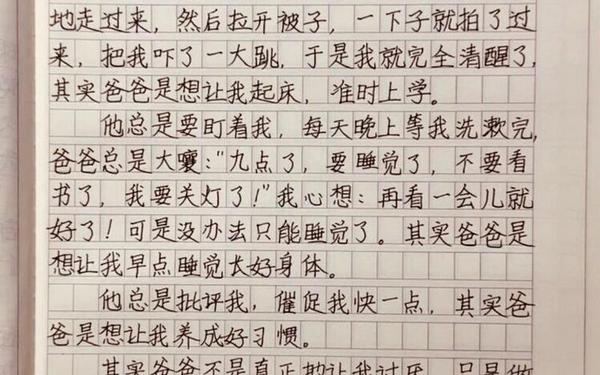 地走过来，然后拉开被子，一下子就拍了过
来，把我吓了一大跳，于是我就完全清醒了，
其实爸爸是想让我起床，准时上学。
他总是要盯着我，每天晚上等我洗漱完，
爸爸总是大嚷："九点了，要睡觉了，不要看
书了，我要关灯了！"我心想：再看一会儿就
好了！可是没办法只能睡觉了。其实爸爸是
想让我早点睡觉长好身体。
他总是批评我，催促我快一点，其实爸
爸是想让我养成好习惯。
其实爸爸不是真正地让我讨厌，只是做